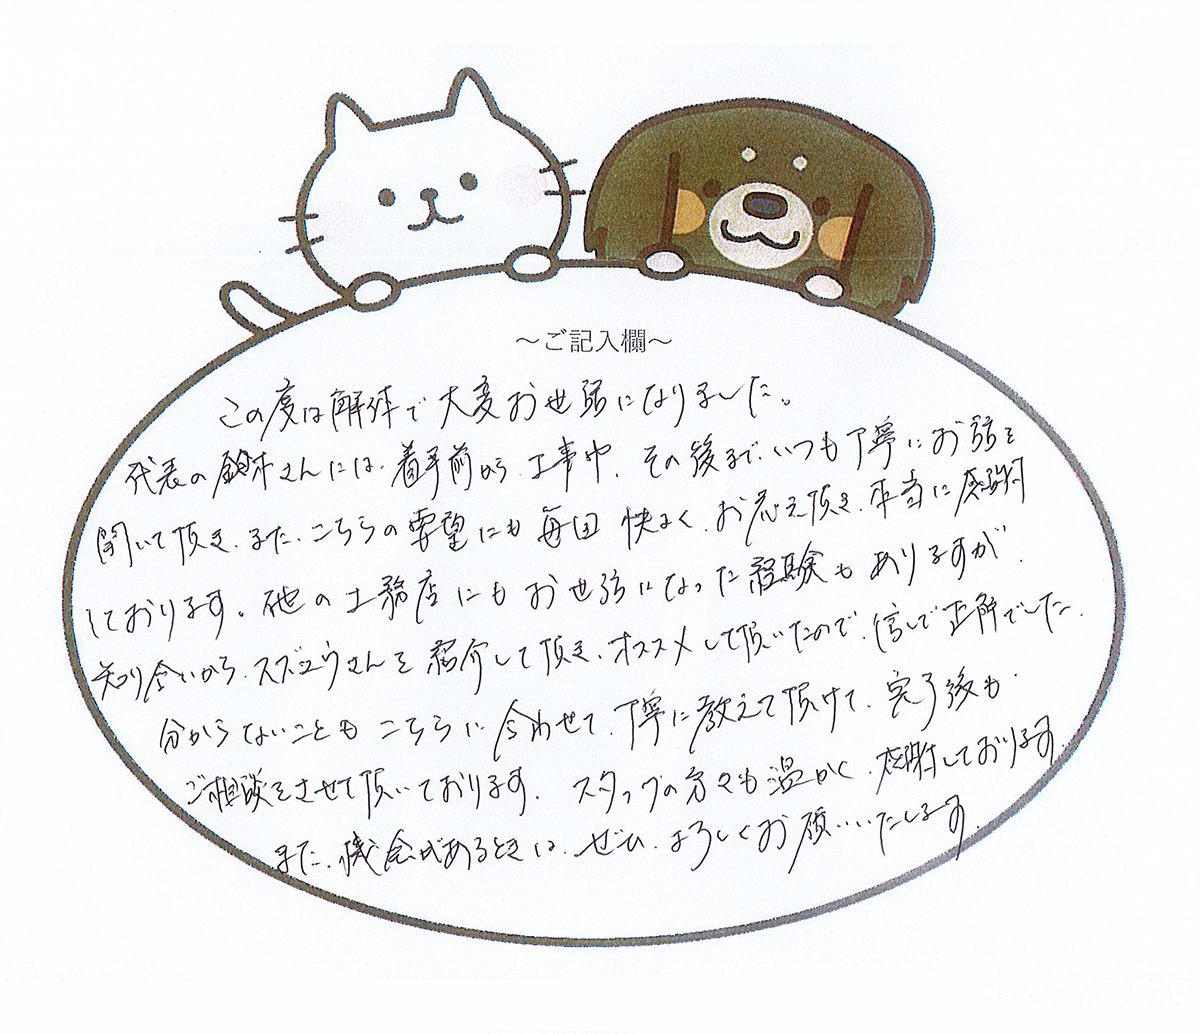 ～ご記入欄～
この度は解体で大変お世話になりました。
代表の鈴木さんには、着手前から、工事中、その後まで、いつも丁寧にお話を
聞いて頂き、また、こちらの要望にも毎回快よく、お応え頂き、本当に感謝
しております。他の工務店にもお世話になった経験もありますが、
知り合いから、スズユウさんを紹介して頂き、オススメして頂いたので、信じて正解でした。
分からないことも こちらに合わせて、丁寧に教えて頂けて、完了後も
ご相談をさせて頂いております。スタッフの方々も温かく、感謝しております。
また、機会があるときは、ぜひ、よろしくお願いいたします。